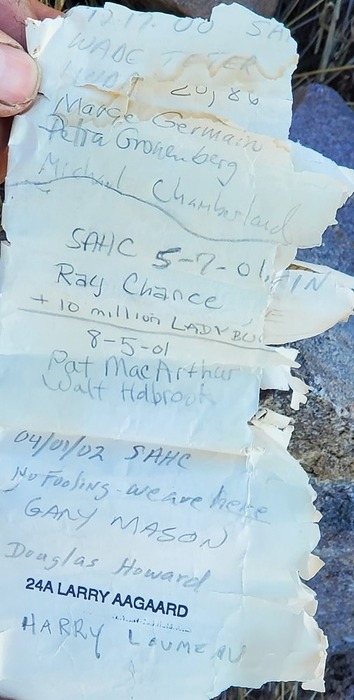 12.17.00 SA
WADE TETER
20, 86
Marge Germain
Petra Gronenberg
Michael Chamberland
SAHC 5-7-01
AIN
Ray Chance
+ 10 million LADY BU
8-5-01
Pat MacArthur
Walt Holbrook
04/01/02 SAHC
No Fooling - we are here
GARY MASON
Douglas Howard
24A LARRY AAGAARD
HARRY